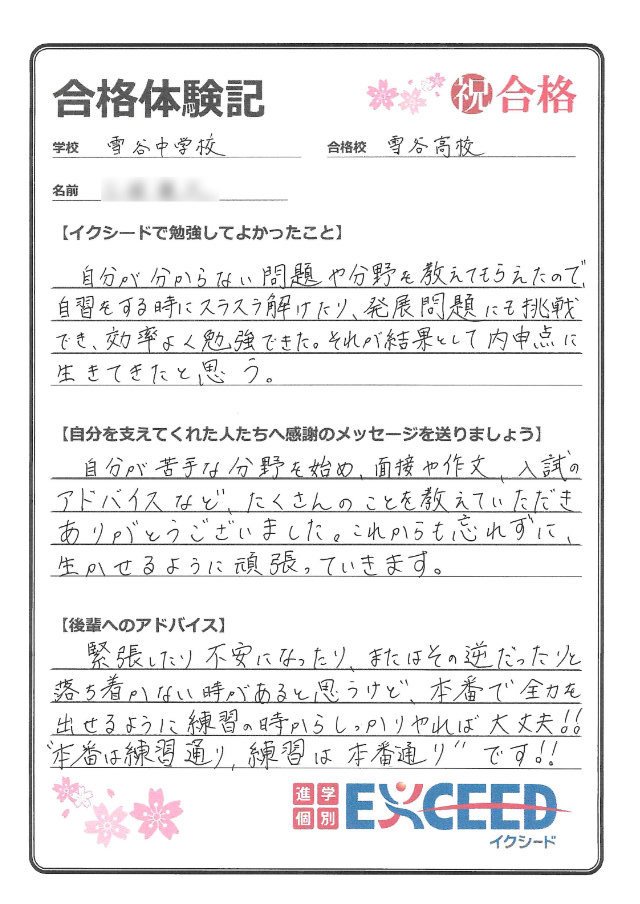 合格体験記
祝 合格
学校 雪谷中学校 合格校 雪谷高校
名前
【イクシードで勉強してよかったこと】
自分が分からない問題や分野を教えてもらえたので、
自習をする時にスラスラ解けたり、発展問題にも挑戦
でき、効率よく勉強できた。それが結果として内申点に
生きてきたと思う。
【自分を支えてくれた人たちへ感謝のメッセージを送りましょう】
自分が苦手な分野を始め、面接や作文、入試の
アドバイスなど、たくさんのことを教えていただき
ありがとうございました。これからも忘れずに、
生かせるように頑張っていきます。
【後輩へのアドバイス】
緊張したり不安になったり、またはその逆だったりと
落ち着かない時があると思うけど、本番で全力を
出せるように練習の時からしっかりやれば大丈夫!!
"本番は練習通り、練習は本番通り"です!!
進学
個別
EXCEED
イクシード